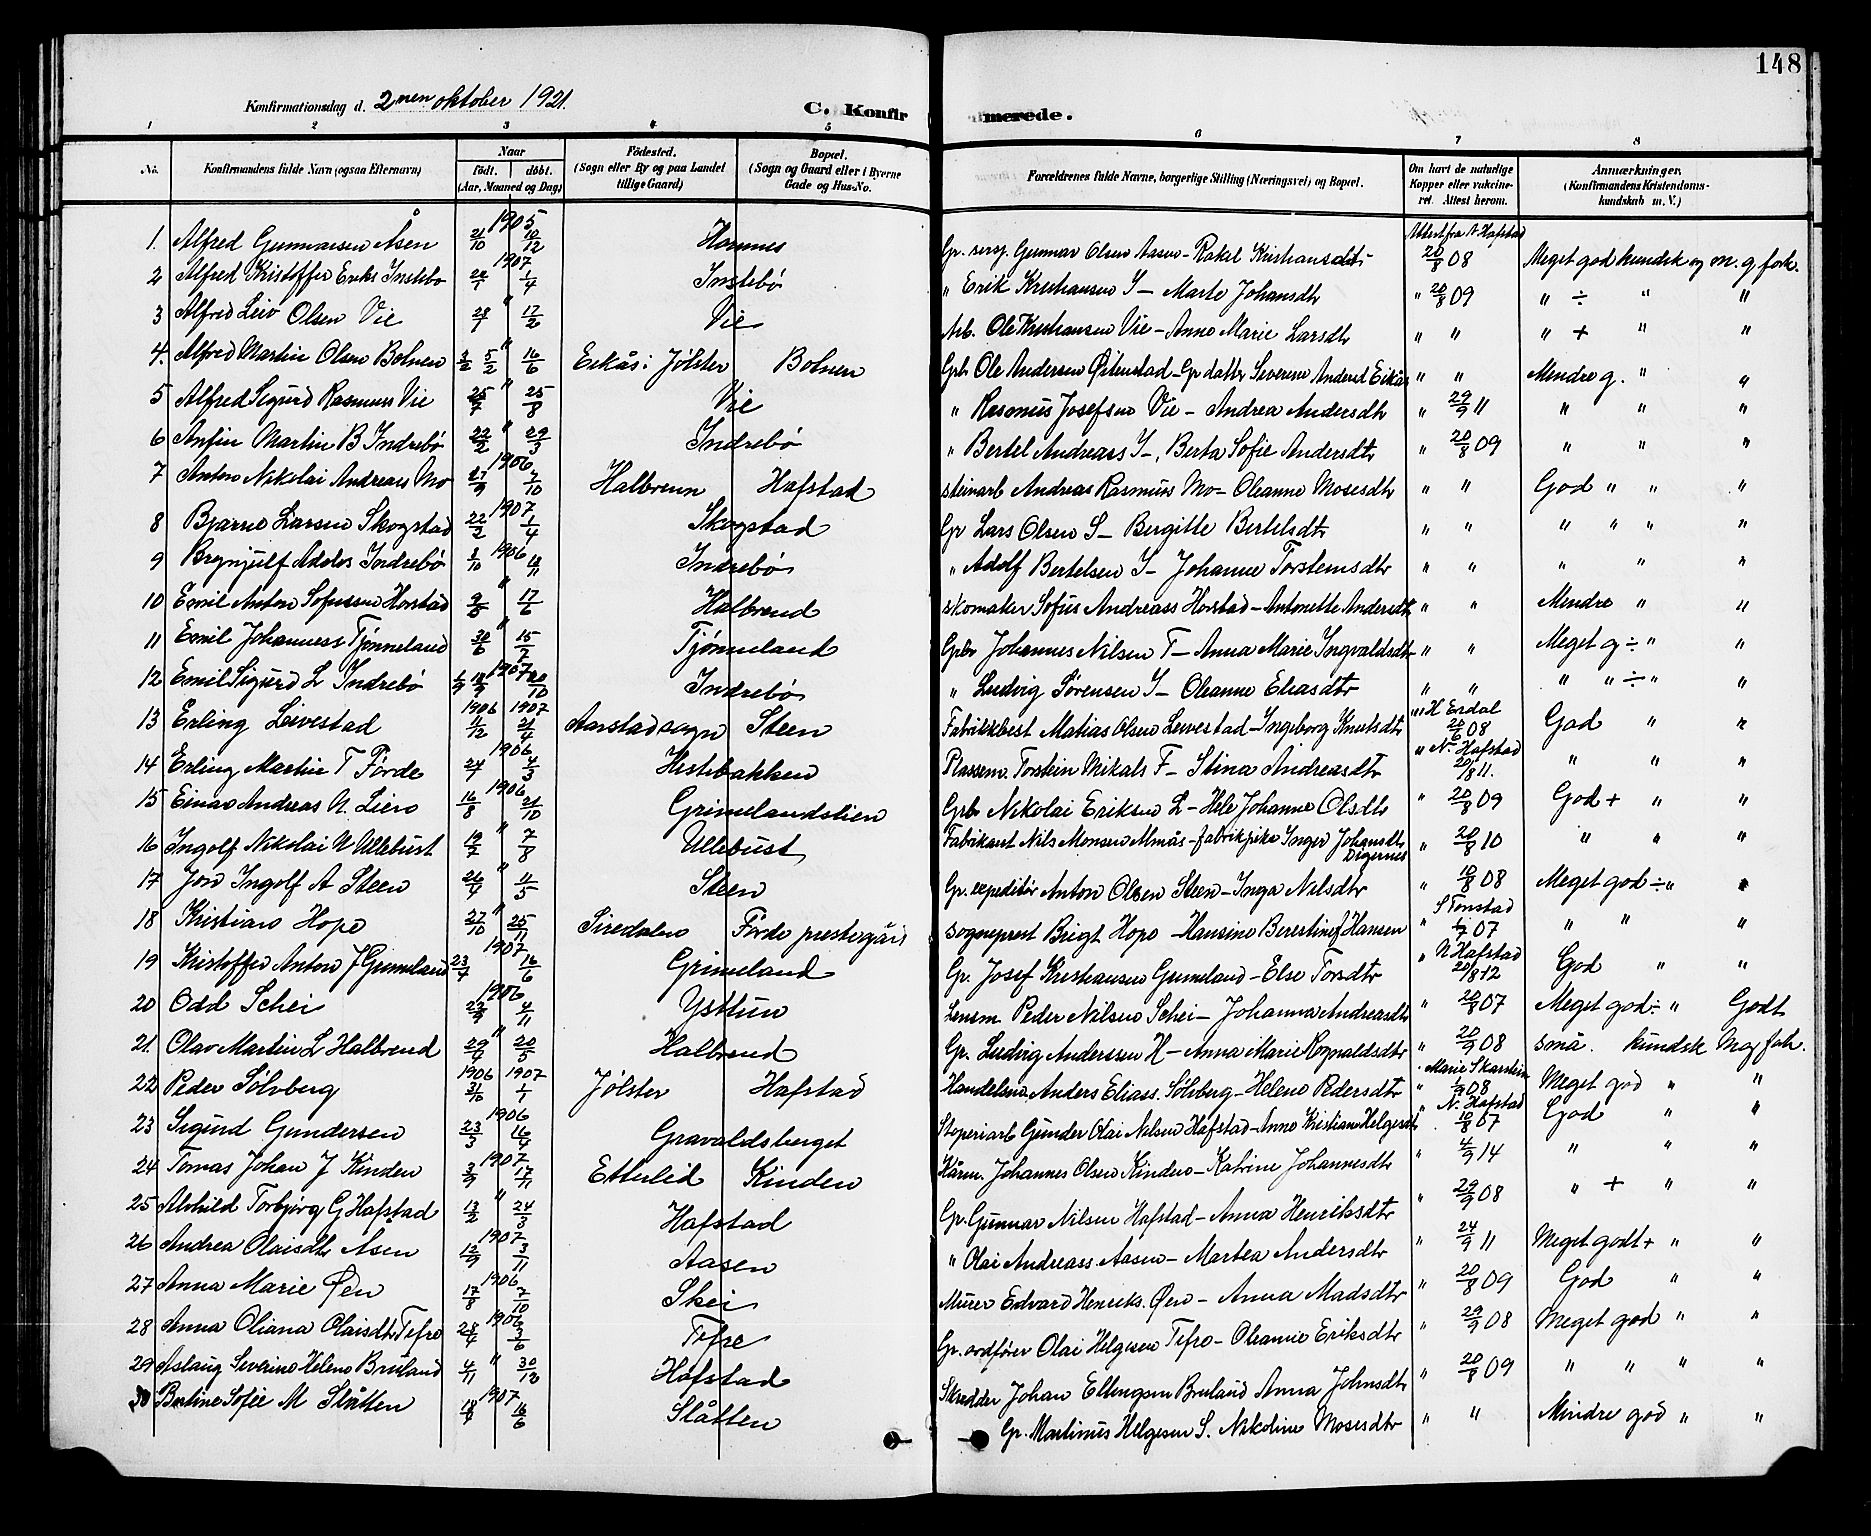 148
Konfirmationsdag d. 2nen oktober 1921.
C. Konfir merede.
1 2 3 4 5 6 7 8
No. Konfirmandens fulde Navn (ogsaa Efternavn) Naar født. døbt. (Aar, Maaned og Dag) Fødested. (Sogn eller By og paa Landet tillige Gaard) Bopæl. (Sogn og Gaard eller i Byerne Gade og Hus-No. Forældrenes fulde Navne, borgerlige Stilling (Næringsvei) og Bopæl. Om havt de naturlige Kopper eller vakcineret. Attest herom. Anmærkninger. (Konfirmandens Kristendomskundskab m. V.)
1. Alfred Gunnarsen Åsen 1905 21/10 10/12 Hornnes Gr. sersj. Gunnar Olsen Aasen - Rakel Kristiansdtr Attest fra N. Hafstad 20/8 08 Meget god kundsk og m. g forh.
2 Alfred Kristoffer Eriks Instebø 1907 1/4 Instebø " Erik Kristiansen I - Marte Johansdtr " 20/8 09 " ÷ " "
3 Alfred Leiv Olsen Vie " 28/1 17/2 Vie Arb. Ole Kristiansen Vie - Anne Marie Larsdtr " " " + " "
4. Alfred Martin Olsen Bolnen " 5/2 16/6 Eikås i Jølster Bolnen Grb. Ole Andersen Østenstad - Gr datter Severine Andersd Eikås " " Mindre g. " "
5 Alfred Sigurd Rasmuss Vie " 25/7 25/8 Vie " Rasmus Josefsen Vie - Andrea Andersdtr " 29/9 11 " " "
6 Anfin Martin B Indrebø " 22/2 29/3 Indrebø " Bertel Andreass I -, Berta Sofie Andersdtr " 20/8 09 " " "
7 Anton Nikolai Andreass Mo 1906 21/9 7/10 Halbrenn Hafstad Steinarb Andreas Rasmuss Mo - Oleanne Mosesdtr " " God " " "
8 Bjarne Larsen Skogstad 1907 22/2 1/4 Skogstad Gr Lars Olsen S - Bergitte Bertelsdtr " " " " " "
9 Brynjulf Adolfs Indrebø 1906 Indrebø " Adolf Bertelsen I - Johanne Torstensdtr " " " " "
10 Emil Anton Sofussen Horstad " 9/5 17/6 Halbrend Skomaker Sofus Andreass Horstad - Antonette Andersdtr " " Mindre " "
11 Emil Johanness Tjønneland " 30/6 15/7 Tjønneland Grbr Johannes Nilsen T - Anna Marie Ingvaldsdtr " " Meget g ÷ " "
12 Emil Sigurd L Indrebø 1907 20/10 Indrebø " Ludvig Sørensen I - Oleanne Eliasdtr " " " " ÷ " "
13 Erling Leivestad 1906 1907 1/12 21/4 Aarstad sogn Steen Fabrikkbest Matias Olsen Leivestad - Ingeborg Knutsdtr " H Erdal 20/6 08 God " "
14 Erling Martin T Førde 1906 24/1 4/3 Hestebakken Plassem. Torstein Mikals F - Stina Andreasdtr " N. Hafstad 20/8 11. " " "
15 Einar Andreas N. Lien 1906 16/8 21/10 Grimelandslien Grbr Nikolai Eriksen L - Hele Johanne Olsdtr " 20/8 09 God + " "
16 Ingolf Nikolai N Ullebust " 7/8 Ullebust Fabrikant Nils Monsen Almås - fabrikpike Inger Johansdtr Digernes " 20/8 10 " " "
17 Jon Ingolf A Steen " 26/4 Steen Gr. expeditør Anton Olsen Steen - Inga Nilsdtr " 10/8 08 Meget god ÷ " "
18 Kristian Hope " 27/10 25/11 Siredalen Førde prestegård Sogneprest Brigt Hope - Hansine f Hansen " S Tonstad 07 " " "
19 Kristoffer Anton J Grimeland 1907 23/4 16/6 Grimeland Gr. Josef Kristiansen Grimeland - Else Torsdtr " N Hafstad 20/8 12 God " "
20 Odd Schei 1906 4/11 Ystun Lensm Peder Nilsen Schei - Johanna Andreasdtr " 20/8 07 Meget god ÷ " Godt
21. Olav Martin L Halbrend " 29/4 20/5 Halbrend Gr. Ludvig Anderssen H - Anna Marie Rognaldsdtr " 20/9 08 små. kundsk Mg forh.
22 Peder Sölvberg 1906 1907 31/10 1/1 Jølster Hafstad Handelsm Anders Eliass. Sölvberg - Helene Pedersdtr " Marie Skarstein 1/9 08 Meget god " "
23 Sigurd Gundersen 1906 23/3 16/4 Gravaldsberget Støperiarb Gunder Olai Nilsen Hafstad - Anne Kristiane Helgesdtr " N. Hafstad 10/8 07 God " "
24 Tomas Johan J Kinden 1907 3/9 17/11 Etterleid Kinden Kårm. Johannes Olsen Kinden - Katrine Johannesdtr " 4/9 14 " " "
25 Alvhild Torbjørg G Hafstad " 13/2 24/3 Hafstad Gr. Gunnar Nilsen Hafstad - Anna Henriksdtr " 29/9 08 " + " "
26 Andrea Olaisdtr Åsen 1907 12/9 3/11 Aasen " Olai Andreass. Aasen - Martea Andersdtr " 24/9 11 Meget godt + " "
27 Anna Marie Øen 1906 17/8 7/10 Skei Murer Edvard Henriks. Øen - Anna Madsdtr " 20/8 09 God " "
28 Anna Oliana Olaisdtr Tefre 1906 28/4 3/6 Tefre Gr. ordfører Olai Helgesen Tefre - Oleanne Eriksdtr " 29/9 08 Meget god " "
29 Aslaug Severine Helene Bruland " 4/11 30/12 Hafstad Skredder Johan Ellingsen Bruland Anna Johnsdtr " 20/8 09 " " " "
30 Bertine Sofie M Slåtten 1907 16/6 Slåtten Gr. Martinus Helgesen S. Nikoline Mosesdtr " " Mindre god " "